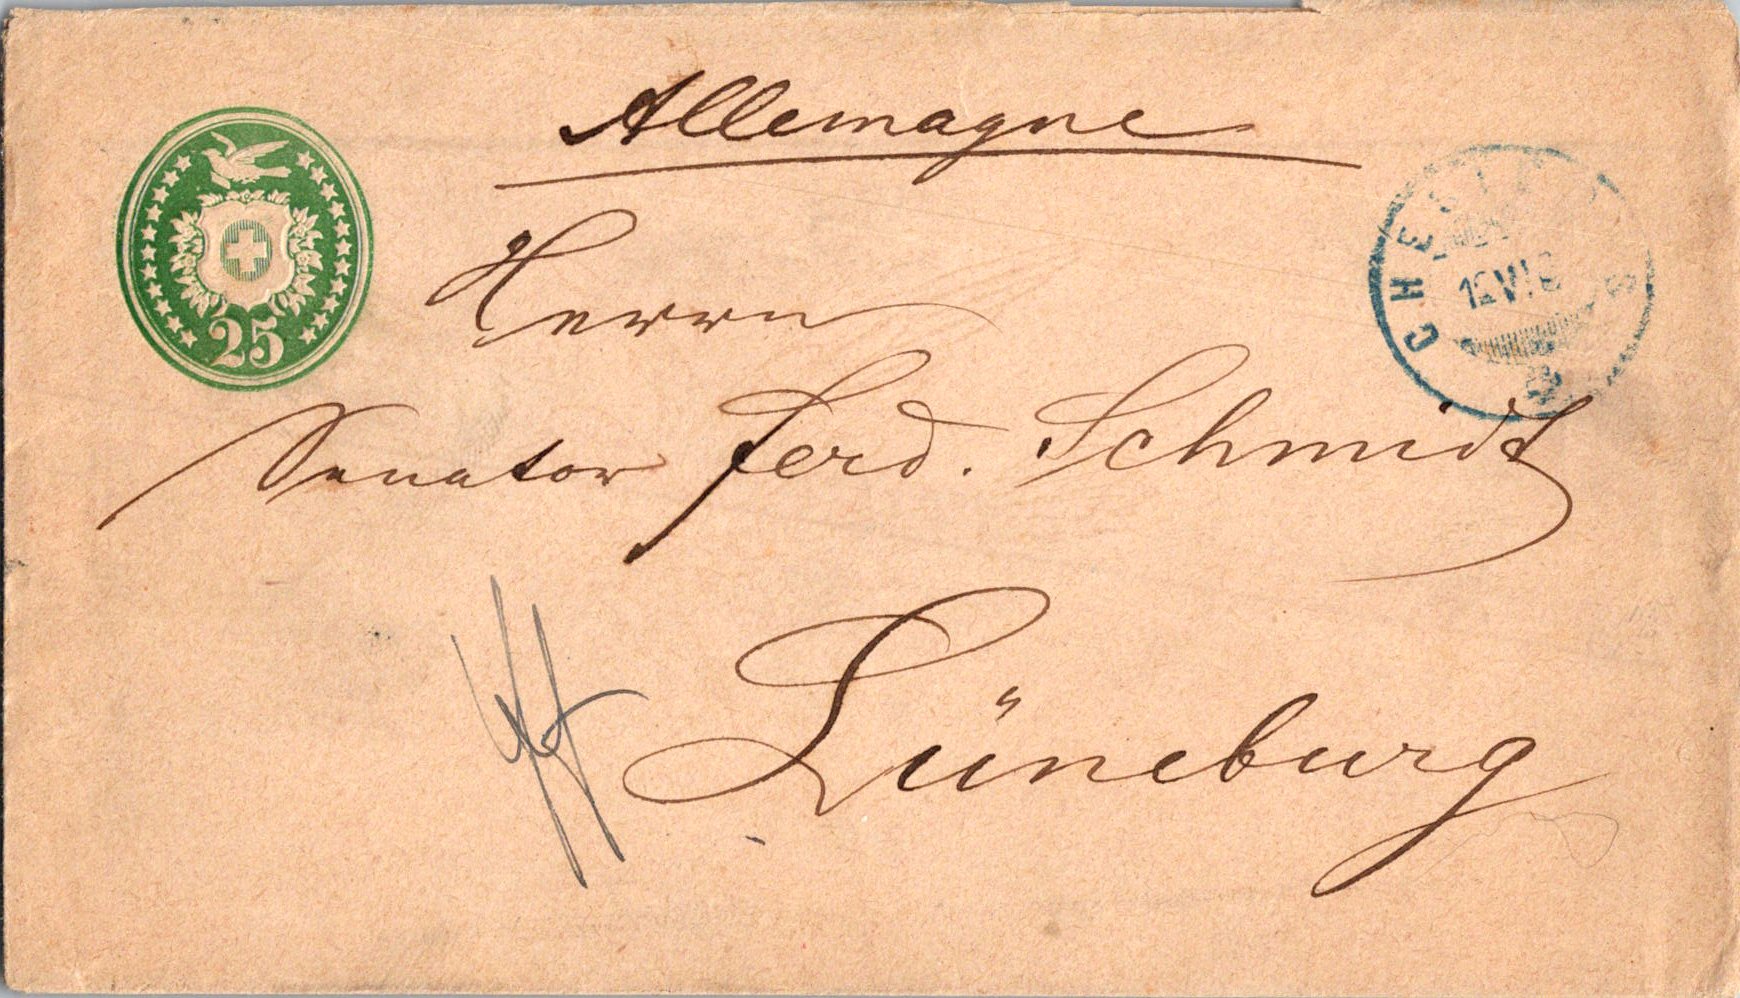 Allemagne
25
Herrn
Senator Ferd. Schmidt
Lüneburg